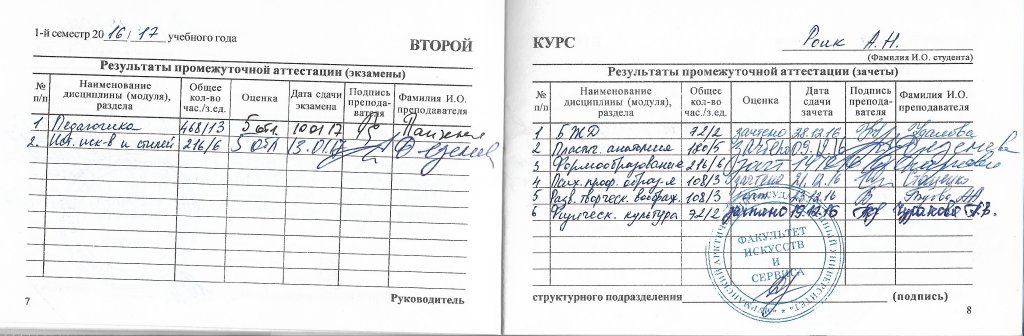 1-й семестр 2016/17 учебного года
ВТОРОЙ
Результаты промежуточной аттестации (экзамены)
№ п/п Наименование дисциплины (модуля), раздела Общее кол-во час./з.ед. Оценка Дата сдачи экзамена Подпись препода-вателя Фамилия И.О. преподавателя
1 Педагогика 468/13 5 отл. 10.01.17
2. Ист. иск-в и стилей 216/6 5 отл 13.01.17
7
Руководитель
КУРС
Роик А.Н.
(Фамилия И.О. студента)
Результаты промежуточной аттестации (зачеты)
№ п/п Наименование дисциплины (модуля), раздела Общее кол-во час./з.ед. Оценка Дата сдачи зачета Подпись препода-вателя Фамилия И.О. преподавателя
1 БЖД 72/2 зачтено 28.12.16
2 Пластич. анатомия 180/5 зачтено 09.12.16
3 Формообразование 216/6 зачт
4 Псих. проф. образ-я 108/3 зачтено 21.12.16
5 Разв. творческ. воображ. 108/3 23.12.16
6 Физическ. культура 72/2 зачтено 19.12.16
ФАКУЛЬТЕТ
ИСКУССТВ
И
СЕРВИСА
структурного подразделения (подпись)
8